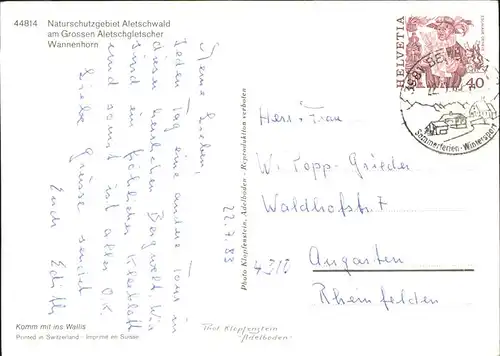 44814 Naturschutzgebiet Aletschwald
am Grossen Aletschgletscher
Wannenhorn
Meine Lieben,
Jeden Tag eine andere Tour in
dieser herrlichen Bergwelt. Wir
sind ein fröhliches Kleeblatt
und sonst ist alles O.K.
Liebe Grüsse sendet
Euch Edith
22.7.83
Photo Klopfenstein, Adelboden - Reproduktion verboten
HELVETIA
40
3981
Sommerferien - Wintersport
Herr + Frau
W. Popp-Grieder
Waldhofstr. 7
4310 Augarten
Rheinfelden
Komm mit ins Wallis
Printed in Switzerland - Imprimé en Suisse
Phot Klopfenstein
Adelboden